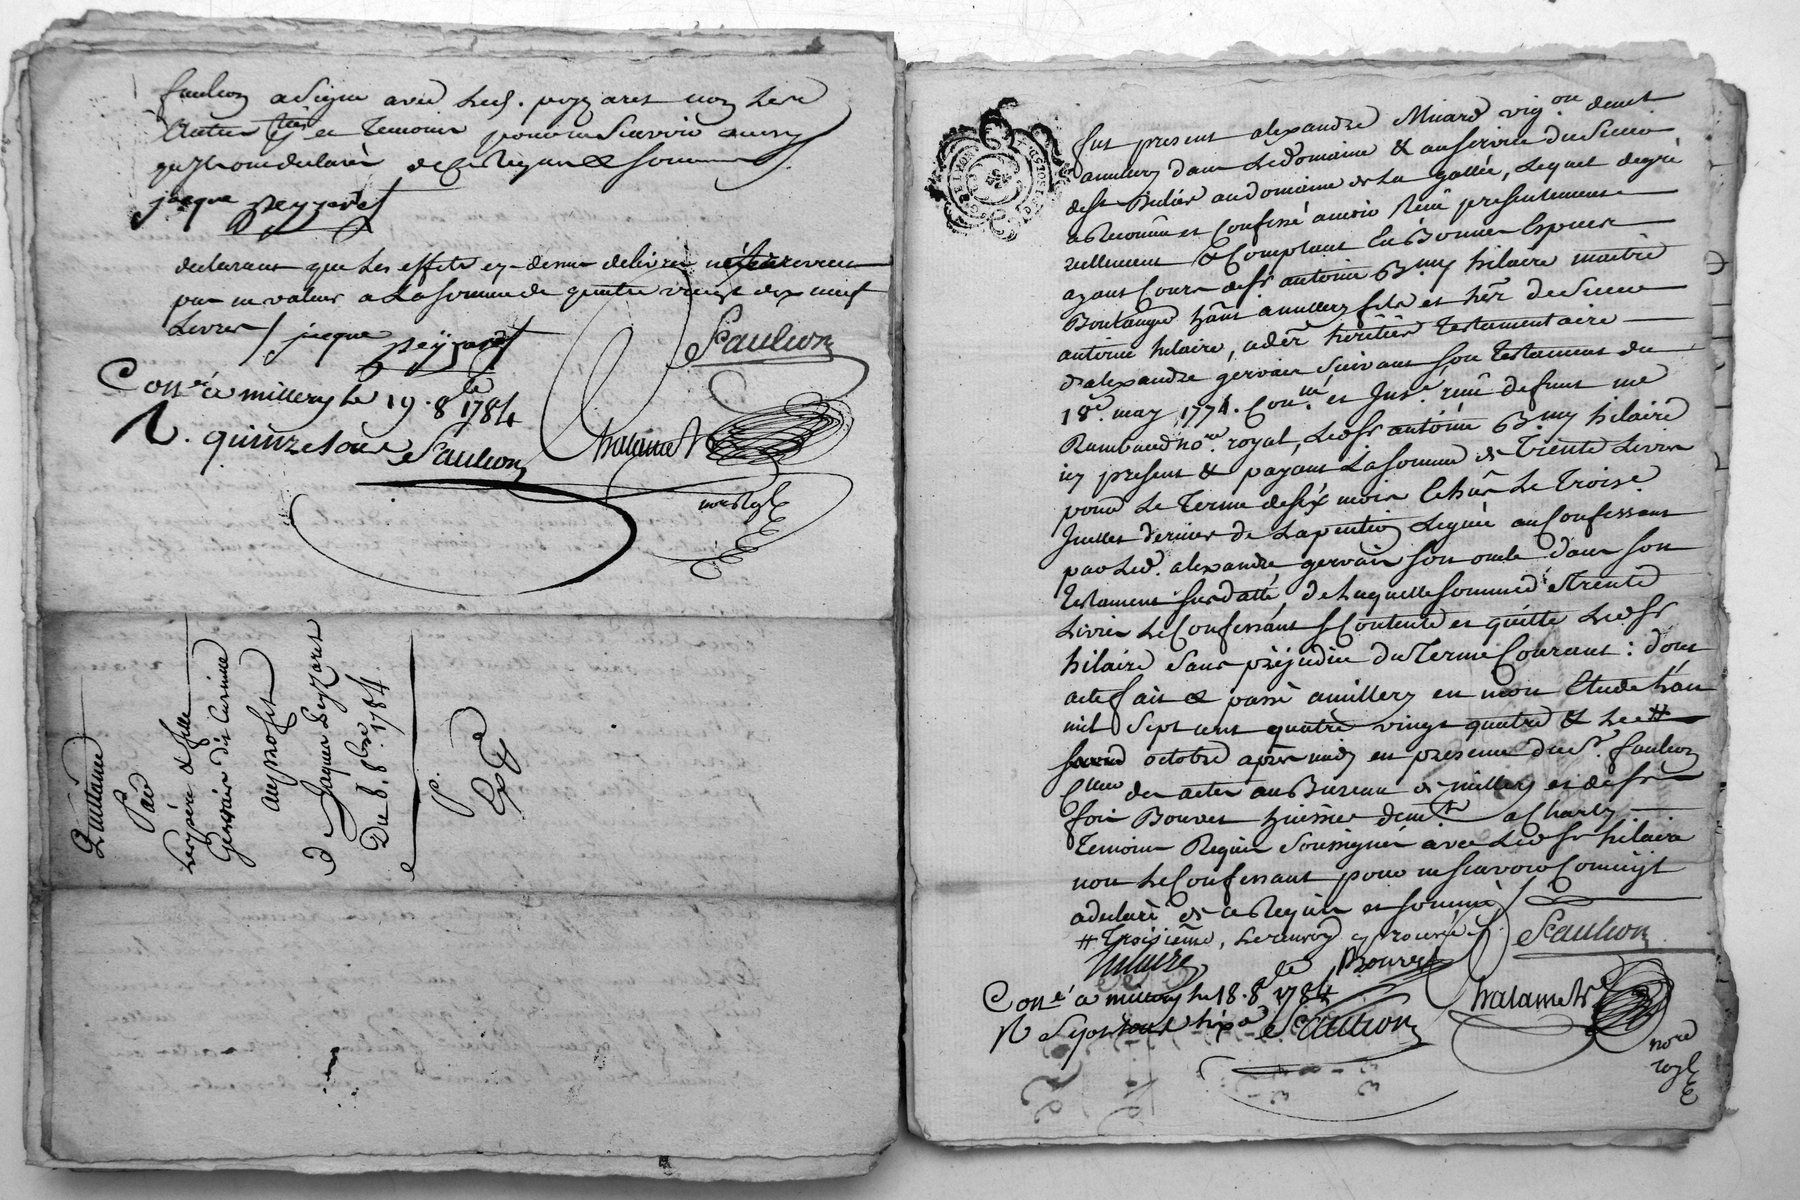 faulcon a signé avec led. peyzaret non les
autres
qu'ils ont déclarés de ce requis & sommes
jacque peyzaret
declarant que les effets cy-dessus delivrés
valeur a La somme de quatre vingt dix neuf
Livres / jacque peyzaret
Faulcon
Con.é a millery le 19. 8.bre 1784
R. quinze sous Faulcon
Chatamel
not roy
Quittance
Par
Les père & fille
Gervais dit Carisme
au proffit
de Jaques Peyzaret
Du 8. 8bre. 1784.
P.
Exp.
G. DE LYON
fut present alexandre Minard vig.on demt
a millery dans Le Domaine & au service du Sieur
de St hilaire au domaine de La gallée, Lequel de gré
a reconnu et Confessé avoir reçu presentement
reellement & Comptant En Bonnes Especes
ayant Cours de sr antoine B.my hilaire maitre
Boulanger hant a millery fils et her. de Sieur
antoine hilaire, a der heritier Testamentaire
d'alexandre gervais suivant son Testament du
18e. may 1774. Con.né et Ins.é reçu defunt me
Rambaud no.re royal, Led sr antoine B.my hilaire
icy present & payant La somme de Trente Livres
pour Le Terme de six mois Echus Le Trois e.
Juillet dernier de La pention Leguée au Confessant
par Led. alexandre gervais son oncle dans son
Testament susdatté de Laquelle somme de Trente
Livres Le Confessant se Contente et quitte Led sr
hilaire sans préjudice du Terme Courant : dont
acte fait & passé a millery en mon Etude L'an
mil Sept cent quatre vingt quatre & Le #
second octobre après midy en presence du Sr. faulcon
C.eur des actes au Bureau de millery et de sr
fois Bouvet huissier demt a Charly
Temoins Requis Soussignés avec Led sr hilaire
non Le Confessant pour ne scavoir Comme il
a declaré de ce Requis et sommé
# Troisième, Le renvoy approuvé
Faulcon
hilaire Bouvet
Chatamel
Con.é a millery le 18. 8.bre 1784
R Faulcon
no.re
royl